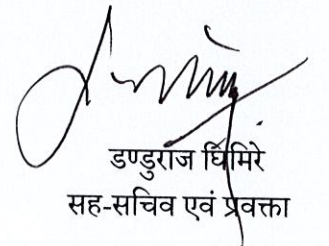 डण्डुराज घिमिरे
सह-सचिव एवं प्रवक्ता